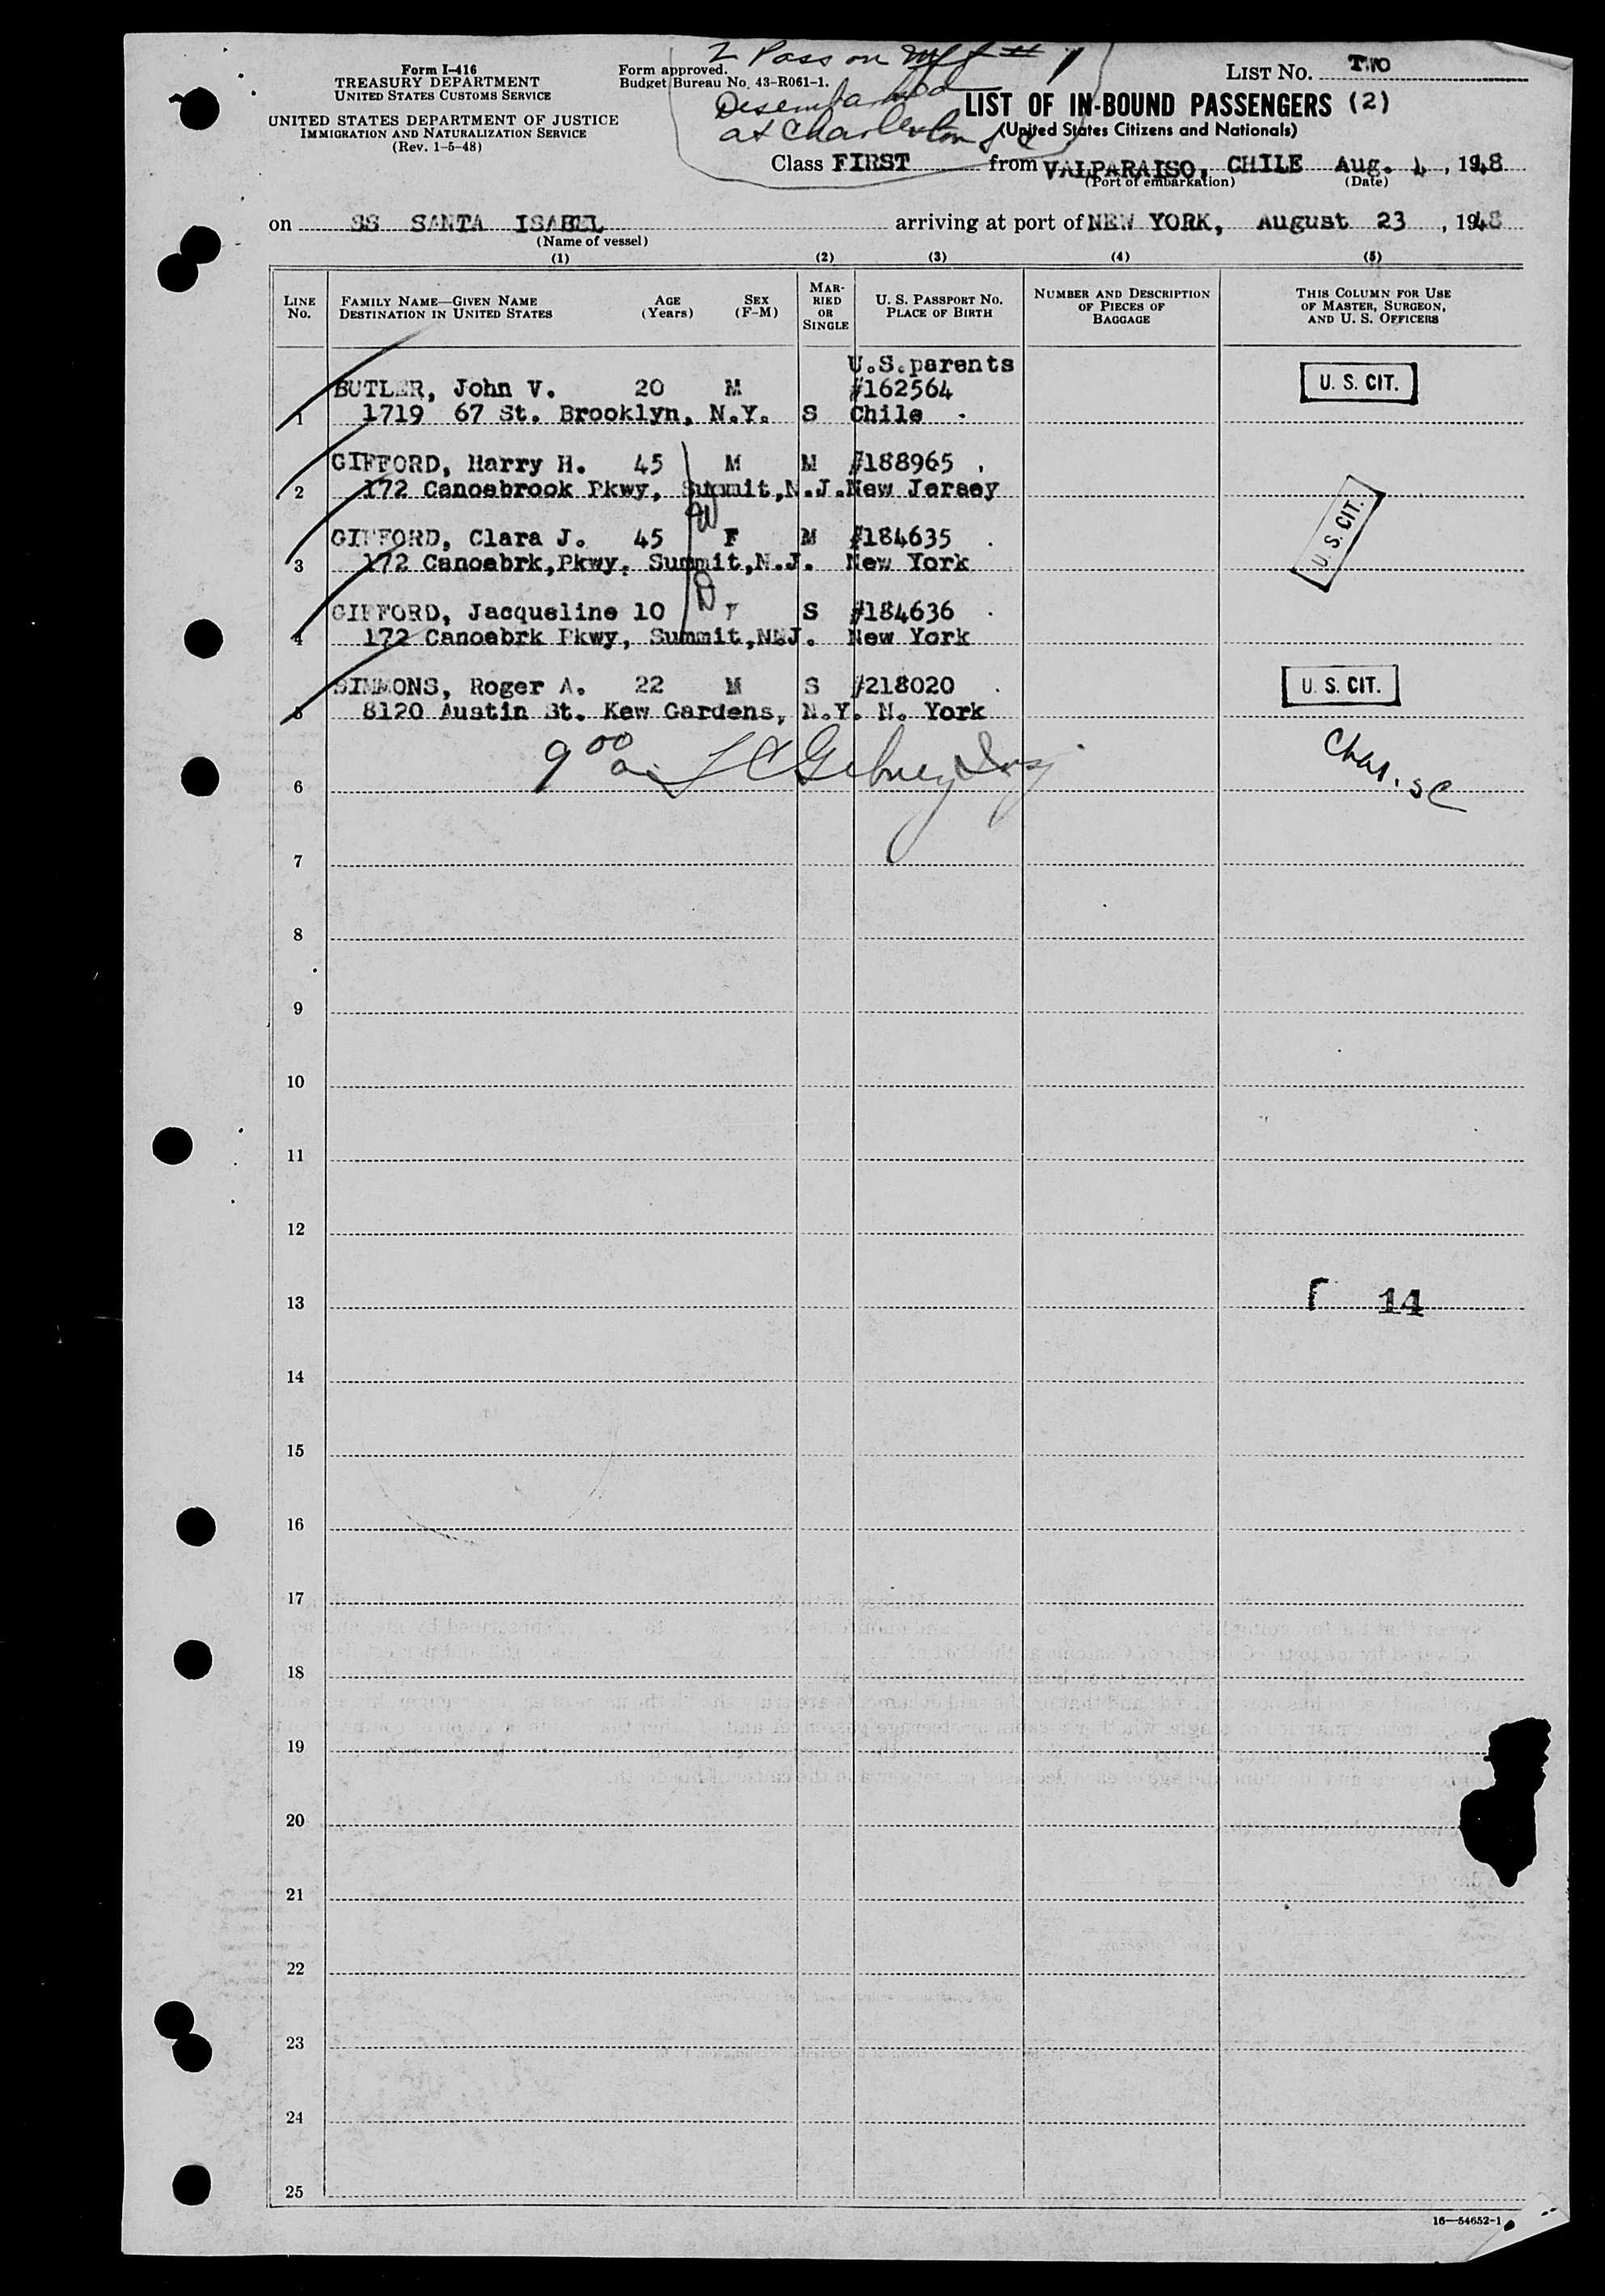 2 Pass on Mft # 1
Disembarked
at Charleston S C
Form I-416
TREASURY DEPARTMENT
UNITED STATES CUSTOMS SERVICE
UNITED STATES DEPARTMENT OF JUSTICE
IMMIGRATION AND NATURALIZATION SERVICE
(Rev. 1-5-48)
Form approved.
Budget Bureau No. 43-R061-1.
LIST No. TWO
LIST OF IN-BOUND PASSENGERS (2)
(United States Citizens and Nationals)
Class FIRST from VALPARAISO, CHILE Aug. 4, 1948
(Port of embarkation) (Date)
on SS SANTA ISABEL arriving at port of NEW YORK, August 23, 1948
(Name of vessel)
(1) (2) (3) (4) (5)
LINE No. FAMILY NAME—GIVEN NAME DESTINATION IN UNITED STATES AGE (Years) SEX (F-M) MARRIED OR SINGLE U. S. PASSPORT NO. PLACE OF BIRTH NUMBER AND DESCRIPTION OF PIECES OF BAGGAGE THIS COLUMN FOR USE OF MASTER, SURGEON, AND U. S. OFFICERS
U.S.parents
BUTLER, John V. 20 M #162564 U. S. CIT.
1 1719 67 St. Brooklyn, N.Y. S Chile
GIFFORD, Harry H. 45 M M #188965
2 172 Canoebrook Pkwy, Summit,N.J. New Jersey
U. S. CIT.
GIFFORD, Clara J. 45 F M #184635
3 172 Canoebrk,Pkwy, Summit,N.J. New York
GIFFORD, Jacqueline 10 F S #184636
4 172 Canoebrk Pkwy, Summit,N.J. New York
SIMMONS, Roger A. 22 M S #218020 U. S. CIT.
5 8120 Austin St. Kew Gardens, N.Y. N. York
9 00 a
Chas. SC
6
7
8
9
10
11
12
13 14
14
15
16
17
18
19
20
21
22
23
24
25
16—54652-1